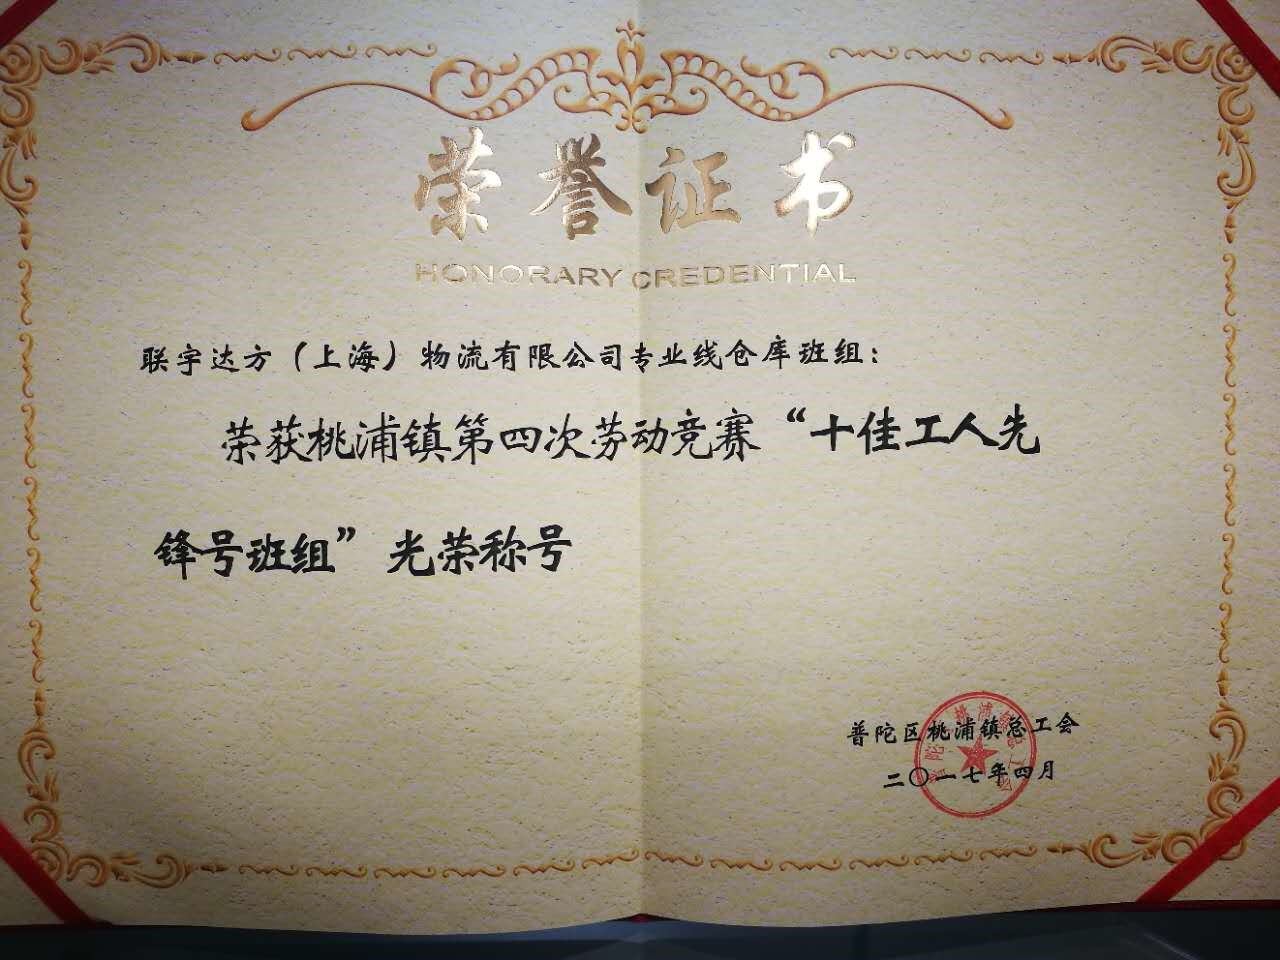 荣誉证书
HONORARY CREDENTIAL
联宇达方（上海）物流有限公司专业线仓库班组：
荣获桃浦镇第四次劳动竞赛“十佳工人先
锋号班组”光荣称号
普陀区桃浦镇总工会
二〇一七年四月